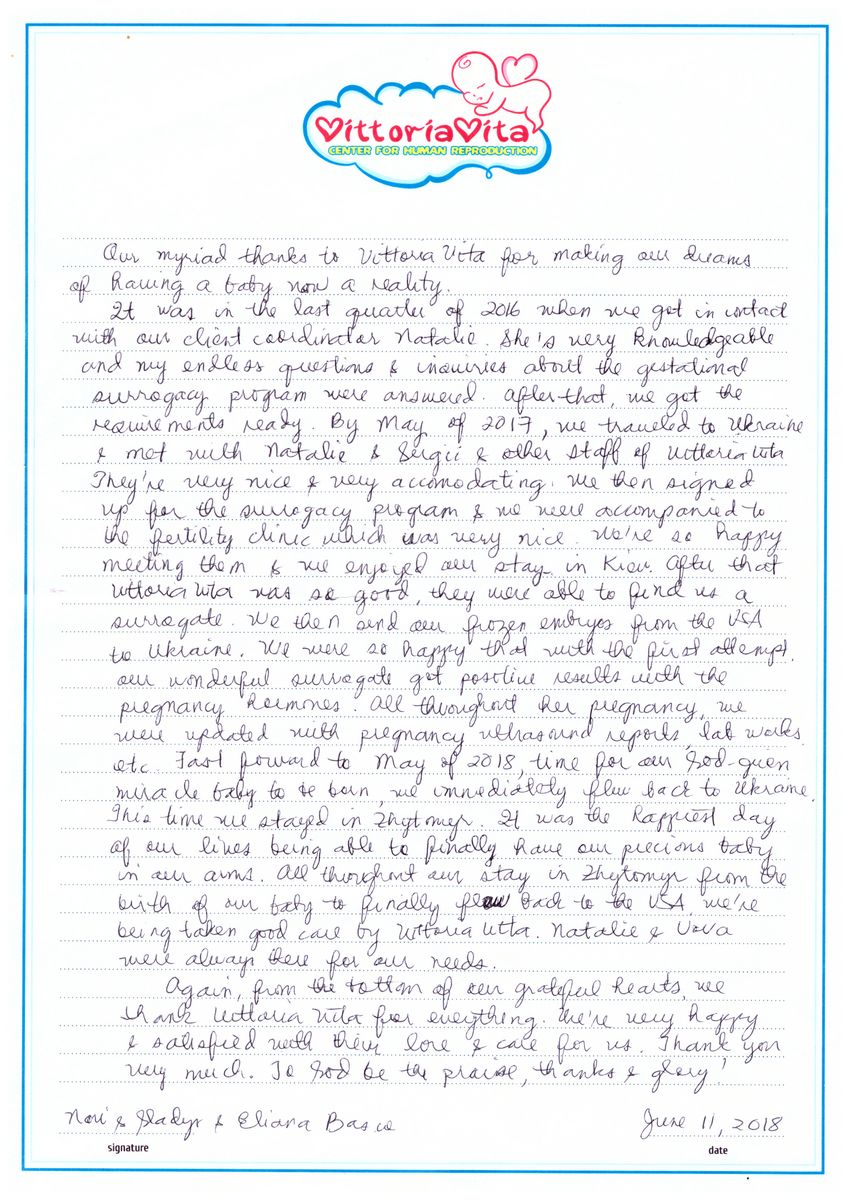 VittoriaVita
CENTER FOR HUMAN REPRODUCTION
Our myriad thanks to Vittoria Vita for making our dreams
of having a baby now a reality.
It was in the last quarter of 2016 when we got in contact
with our client coordinator Natalie. She's very knowledgeable
and my endless questions & inquiries about the gestational
surrogacy program were answered. After that, we got the
requirements ready. By May of 2017, we traveled to Ukraine
& met with Natalie & Sergii & other staff of Vittoria Vita
They're very nice & very accomodating. We then signed
up for the surrogacy program & we were accompanied to
the fertility clinic which was very nice. We're so happy
meeting them & we enjoyed our stay in Kiev. After that
Vittoria Vita was so good, they were able to find us a
surrogate. We then send our frozen embryos from the USA
to Ukraine. We were so happy that with the first attempt,
our wonderful surrogate got positive results with the
pregnancy hormones. All throughout her pregnancy, we
were updated with pregnancy ultrasound reports, lab works
etc. Fast forward to May of 2018, time for our God-given
miracle baby to be born, we immediately flew back to Ukraine.
This time we stayed in Zhytomyr. It was the happiest day
of our lives being able to finally have our precious baby
in our arms. All throughout our stay in Zhytomyr from the
birth of our baby to finally flew back to the USA, we're
being taken good care by Vittoria Vita. Natalie & Vova
were always there for our needs.
Again, from the bottom of our grateful hearts, we
thank Vittoria Vita for everything. We're very happy
& satisfied with their love & care for us. Thank you
very much. To God be the praise, thanks & glory!
& Gladys & Eliana Basco
June 11, 2018
signature
date